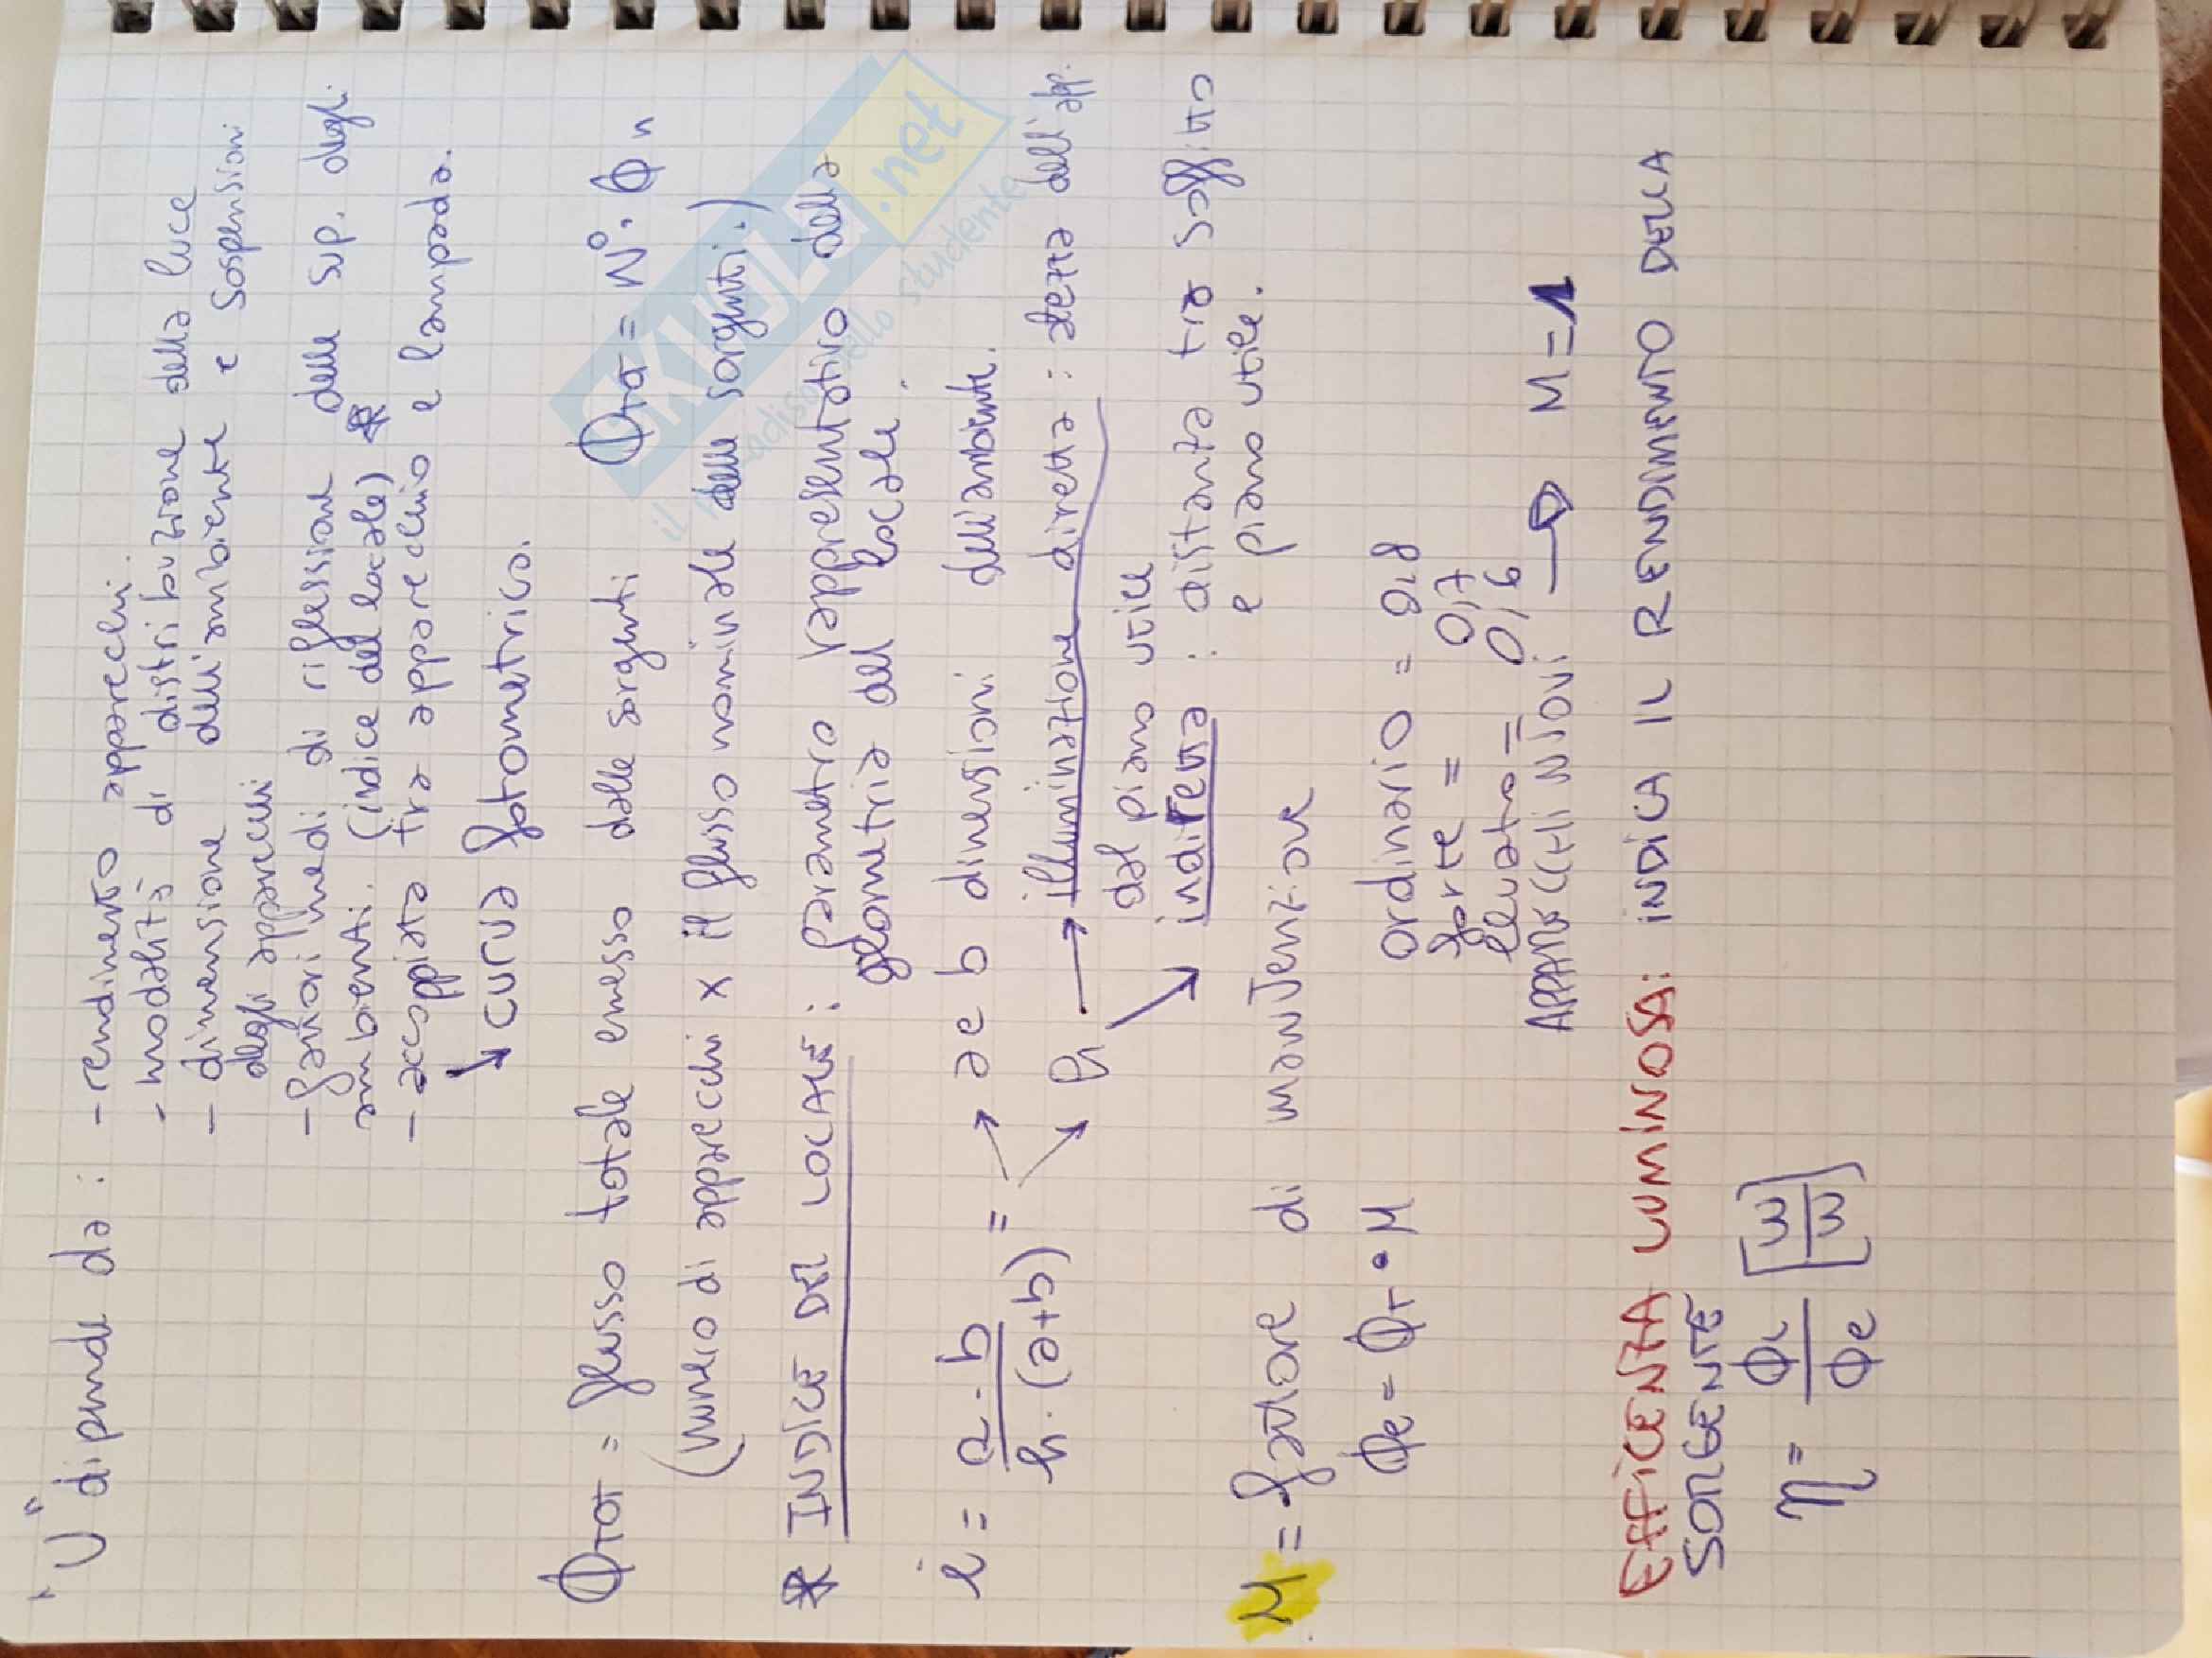 "U" dipende da: - rendimento apparecchi.
- modalità di distribuzione della luce
- dimensione dell'ambiente e sospensioni
degli apparecchi
- fattori medi di riflessione delle sup. degli
ambienti. (indice del locale) *
- accoppiata tra apparecchio e lampada.
↳ curva fotometrica.
ΦTOT = flusso totale emesso dalle sorgenti ΦTOT = N°. Φn
(numero di apparecchi x il flusso nominale delle sorgenti.)
* INDICE DEL LOCALE: parametro rappresentativo della
geometria del locale.
i = a·b / h·(a+b) = → a e b dimensioni dell'ambiente.
↘ h → illuminazione diretta: altezza dell'app.
dal piano utile
↘ indiretta: distanza tra soffitto
e piano utile.
M = fattore di manutenzione
Φe = ΦT • M ordinario = 0,8
forte = 0,7
elevato = 0,6
APPARECCHI NUOVI → M=1
EFFICENZA LUMINOSA: iNDiCA IL RENDIMENTO DELLA
SORGENTE
η = Φl / Φe [w/w]
SKUOLA.net
il paradiso dello studente